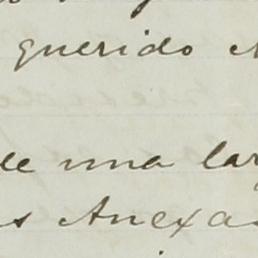 querido
de una lar
s Anexas